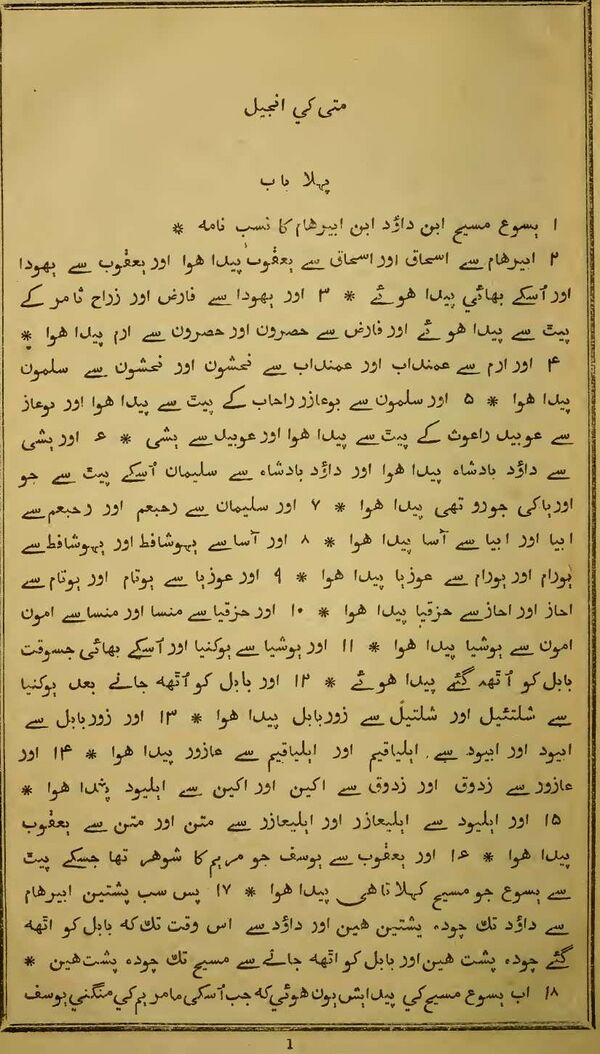 متی کي انجیل
پہلا باب
۱ یسوع مسیح ابن داؤد ابن ابیرهام کا نسب نامه *
۲ ابیرهام سے اسحاق اور اسحاق سے یعقوب پیدا هوا اور یعقوب سے یهودا
اور اُسکے بھائي پیدا هوئے * ۳ اور یهودا سے فارض اور زراح ثامر کے
پیٹ سے پیدا هوئے اور فارض سے حصرون اور حصرون سے ارم پیدا هوا *
۴ اور ارم سے عمنداب اور عمنداب سے نحشون اور نحشون سے سلمون
پیدا هوا * ۵ اور سلمون سے بوعازر راحاب کے پیٹ سے پیدا هوا اور بوعاز
سے عوبید راعوث کے پیٹ سے پیدا هوا اور عوبید سے یشی * ۶ اور یشی
سے داؤد بادشاه پیدا هوا اور داؤد بادشاه سے سلیمان اُسکے پیٹ سے جو
اوریاکی جورو تھی پیدا هوا * ۷ اور سلیمان سے رحبعم اور رحبعم سے
ابیا اور ابیا سے آسا پیدا هوا * ۸ اور آسا سے یہوشافط اور یہوشافط سے
یورام اور یورام سے عوزیا پیدا هوا * ۹ اور عوزیا سے یوتام اور یوتام سے
احاز اور احاز سے حزقیا پیدا هوا * ۱۰ اور حزقیا سے منسا اور منسا سے امون
امون سے یوشیا پیدا هوا * ۱۱ اور یوشیا سے یوکنیا اور اُسکے بھائی جسوقت
بابل کو اُٹھہ گئے پیدا هوئے * ۱۲ اور بابل کو اُٹھه جانے بعد یوکنیا
سے شلتئیل اور شلتیل سے زوربابل پیدا هوا * ۱۳ اور زوربابل سے
ابیود اور ابیود سے ایلیاقیم اور ایلیاقیم سے عازور پیدا هوا * ۱۴ اور
عازور سے زدوق اور زدوق سے اکین اور اکین سے ایلیود پیدا هوا *
۱۵ اور ایلیود سے ایلیعازر اور ایلیعازر سے متن اور متن سے یعقوب
پیدا هوا * ۱۶ اور یعقوب سے یوسف جو مریم کا شوهر تھا جسکے پیٹ
سے یسوع جو مسیح کہلاتا هی پیدا هوا * ۱۷ پس سب پشتین ابیرهام
سے داؤد تك چوده پشتین هین اور داؤد سے اس وقت تك که بابل کو اٹھه
گئے چوده پشت هین اور بابل کو اٹھه جانے سے مسیح تك چوده پشت هین *
۱۸ اب یسوع مسیح کي پیدایش یون هوئي که جب اُسکی ما مریم کي منگني یوسف
1